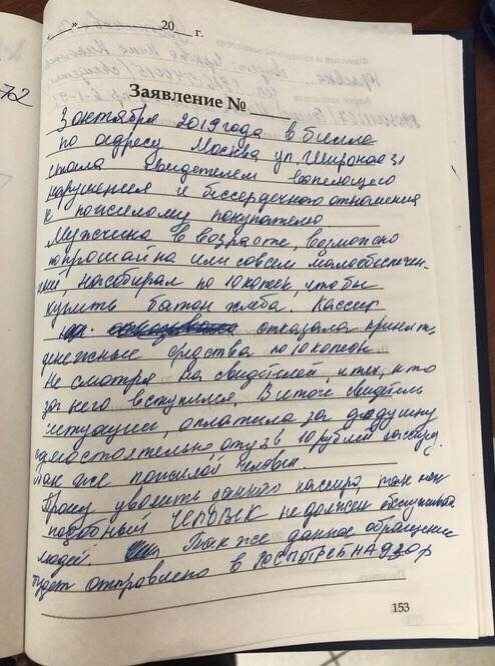 «___»____________20___г.
72
Заявление № ____
3 октября 2019 года в Билла
по адресу Москва ул Широкая 31
стала свидетелем вопиющего
нарушения и бессердечного отношения
к пожилому покупателю
Мужчина в возрасте, возможно
попрошайка или совсем малообеспечен-
ный, насобирал по 10 копеек, чтобы
купить батон хлеба. Кассир
отказала принять
денежные средства по 10 копеек
Не смотря на свидетелей, и тех, кто
за него вступился. В итоге свидетель
ситуации, оплатила за дедушку
самостоятельно отдав 10 рублей кассиру.
Так же пожилой человек.
Прошу уволить данного кассира, так как
подобный ЧЕЛОВЕК не должен обслуживать
людей. Так же данное обращение
будет отправлено в РОСПОТРЕБНАДЗОР
153